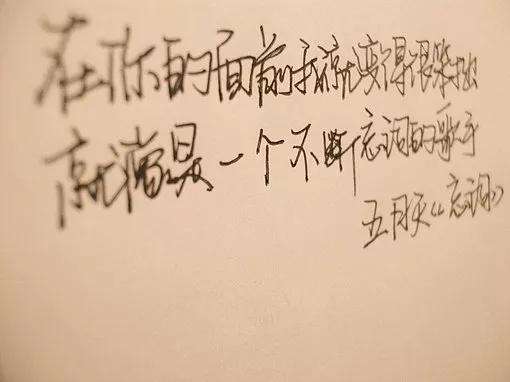 在你的面前我就变得很笨拙
就满是一个不断忘词的歌手
五月天《忘词》